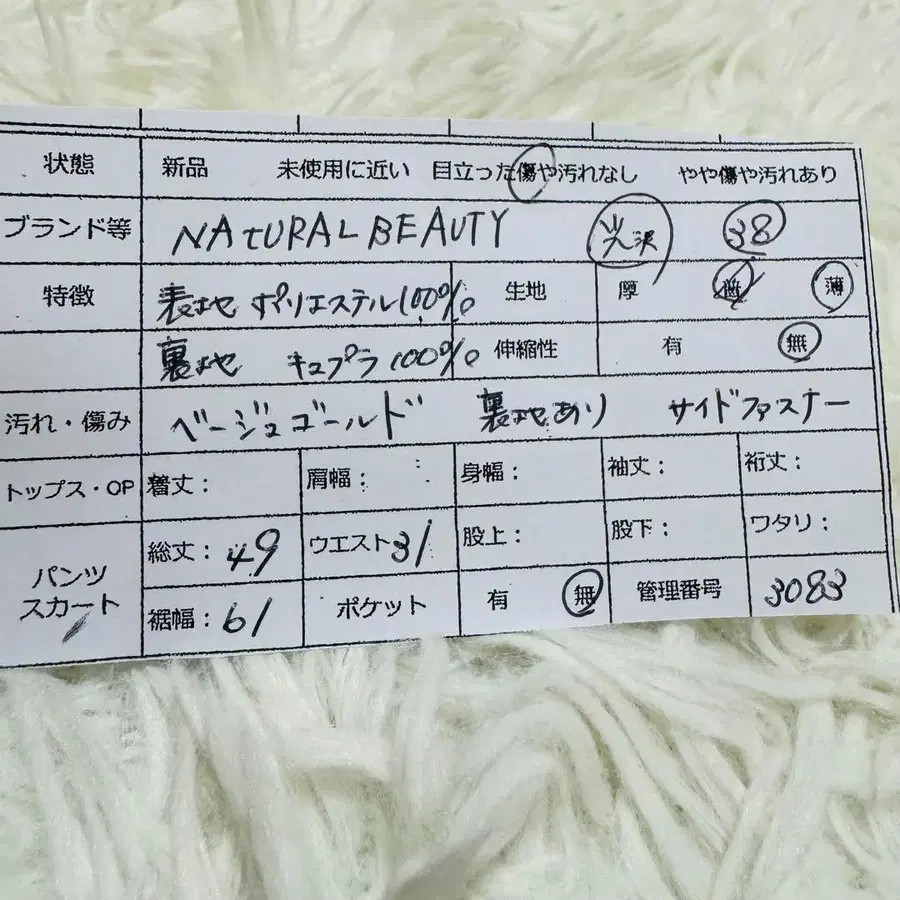 状態 新品 未使用に近い 目立った傷や汚れなし やや傷や汚れあり
ブランド等 NAtURAL BEAUTY 光沢 38
特徴 表地 ポリエステル100% 生地 厚 普 薄
裏地 キュプラ100% 伸縮性 有 無
汚れ・傷み ベージュゴールド 裏地あり サイドファスナー
トップス・OP 着丈: 肩幅: 身幅: 袖丈: 裄丈:
パンツ スカート 総丈:49 ウエスト31 股上: 股下: ワタリ:
裾幅:61 ポケット 有 無 管理番号 3083